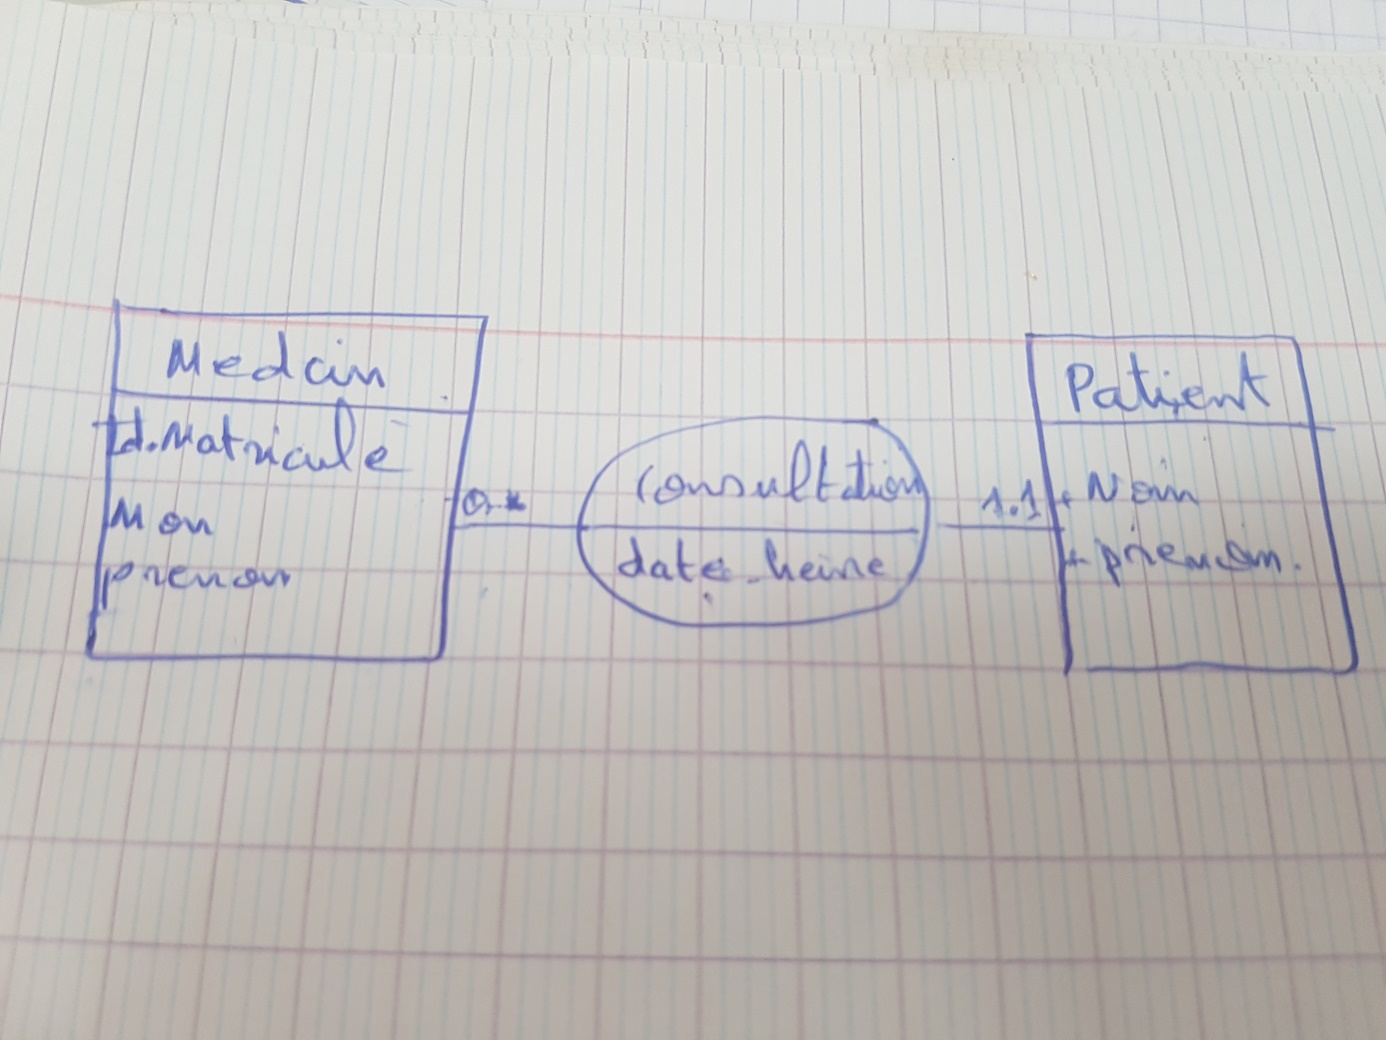 Medcin
Id.Matricule
Mon
prenon
0.*
Consultation
date_heure
1.1
Patient
+ Nom
+ prenom.